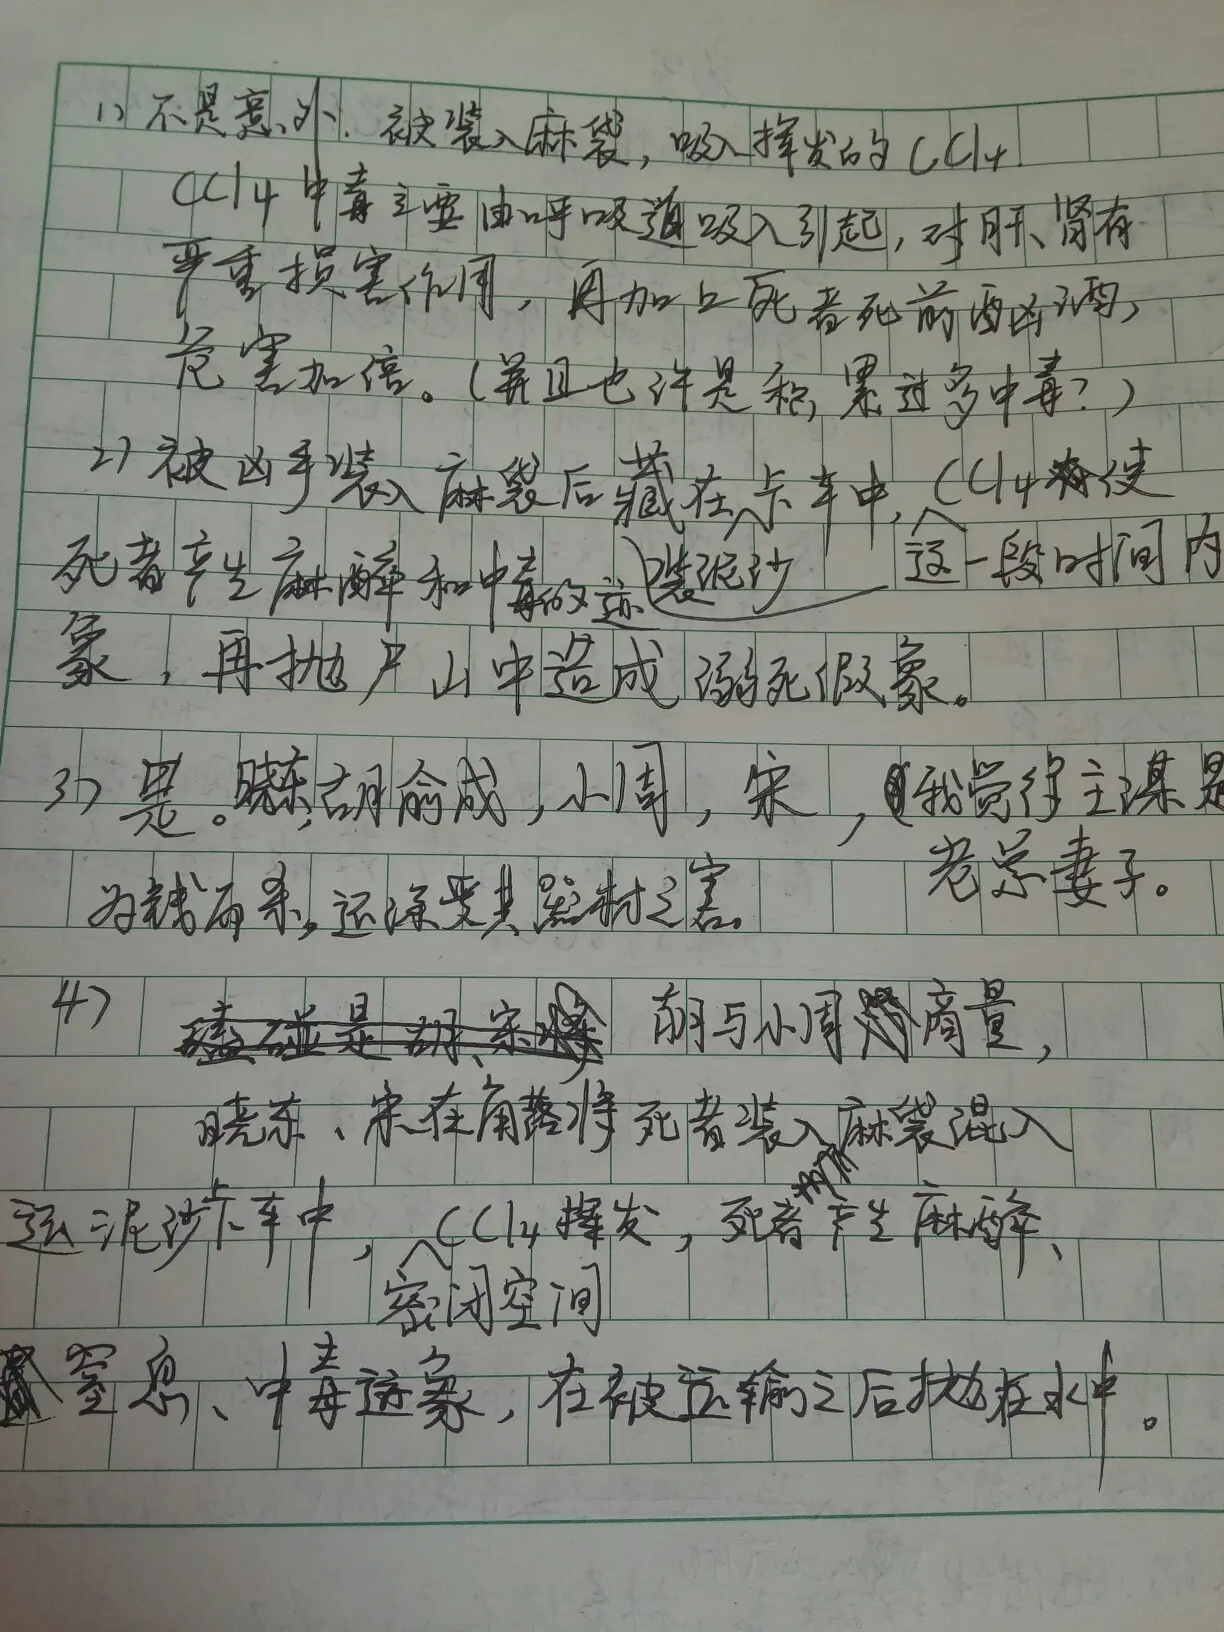 1) 不是意外. 被装入麻袋, 吸入挥发的CCl4.
CCl4中毒主要由呼吸道吸入引起, 对肝、肾有
严重损害作用, 再加上死者死前酗酒,
危害加倍。(并且也许是积累过多中毒?)
2) 被凶手装入麻袋后藏在卡车中, CCl4使
死者产生麻醉和中毒的迹 装泥沙 这一段时间内
象, 再抛尸山中造成溺死假象。
3) 是。晓东, 胡俞成, 小周, 宋, (我觉得主谋是
老宗妻子。
为钱而杀, 还深受其器材之害。
4) 磕碰是胡、宋 胡与小周商量,
晓东、宋在角落将死者装入麻袋混入
运泥沙卡车中, CCl4挥发, 死者产生麻醉、
密闭空间
窒息、中毒迹象, 在被运输之后抛在水中。